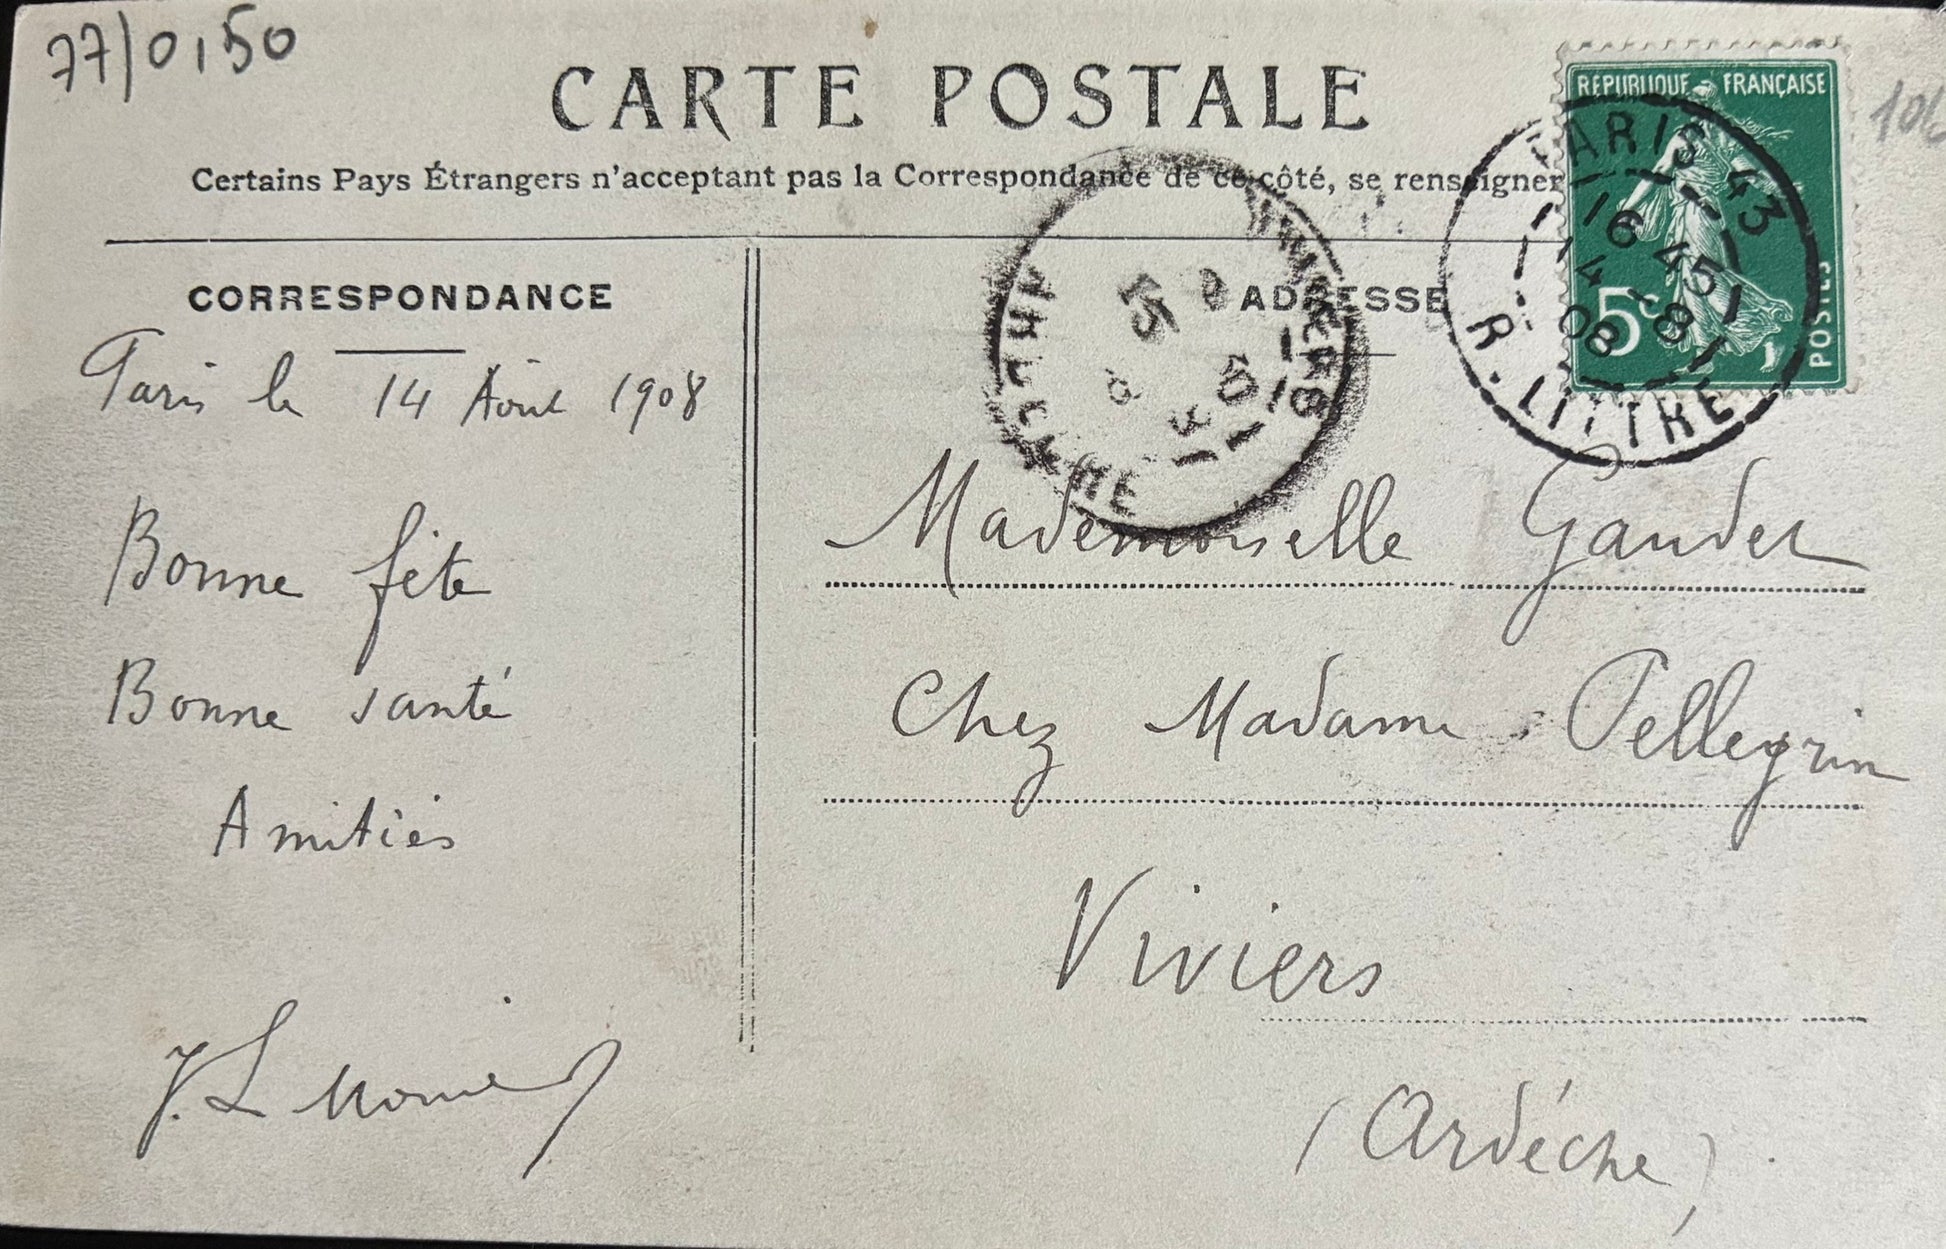 77/0,50
CARTE POSTALE
Certains Pays Étrangers n'acceptant pas la Correspondance de ce côté, se renseigner
RÉPUBLIQUE FRANÇAISE
5c
POSTES
PARIS 43
16 45
14 -8
08
R. LITTRÉ
VIVIERS
ARDECHE
CORRESPONDANCE
Paris le 14 Août 1908
Bonne fête
Bonne santé
Amitiés
ADRESSE
Mademoiselle Gaudet
Chez Madame Pellegrin
Viviers
(Ardèche)